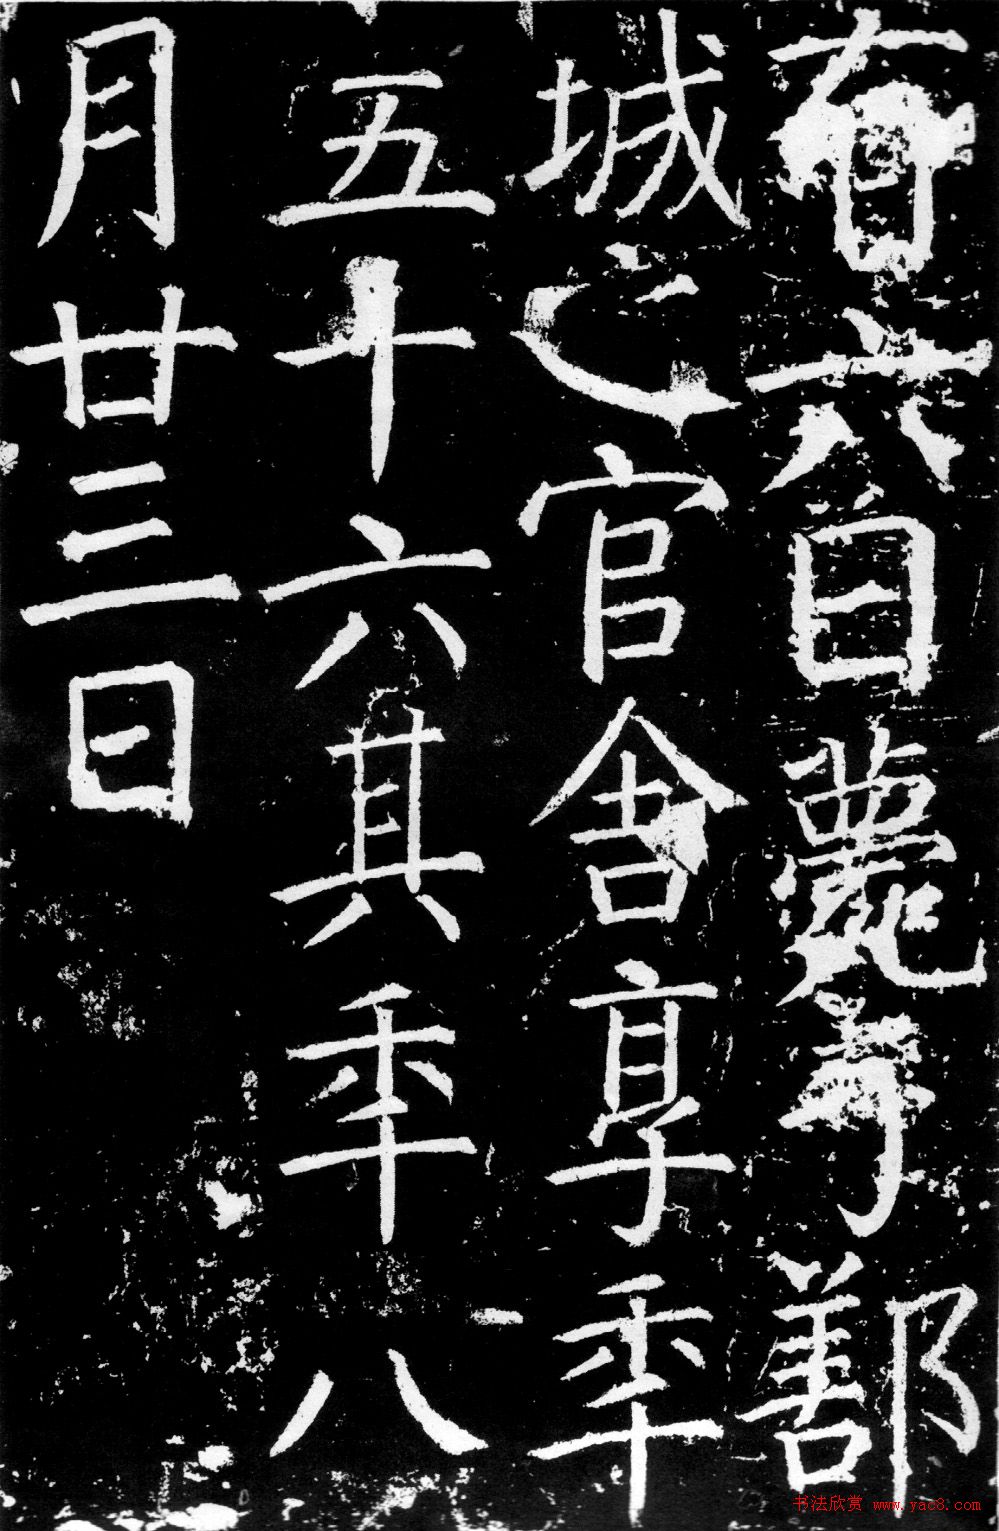 有六日薨于鄯
城之官舍享年
五十六其年八
月廿三日
书法欣赏 www.yac8.com